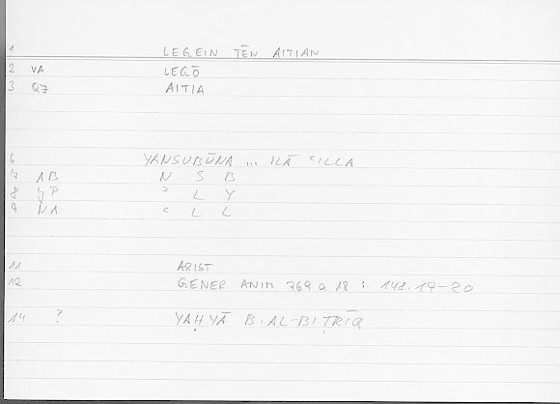 1 LEGEIN TĒN AITIAN
2 VA LEGŌ
3 Q7 AITIA
6 YANSUBŪNA ... ILĀ ʿILLA
7 AB N S B
8 JP ʾ L Y
9 NA ʿ L L
11 ARIST
12 GENER ANIM 769 a 18 : 148.19-20
14 ? YAḤYĀ B. AL-BIṬRĪQ